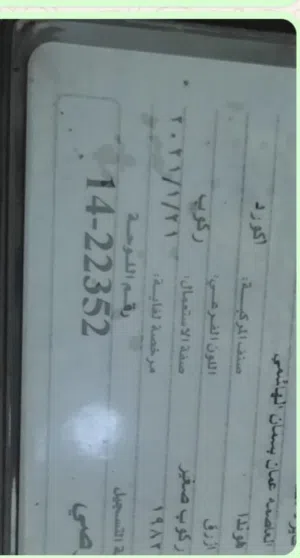 العاصمه عمان بسمان الهاشمي
هوندا صنف المركبة: اكورد
ازرق اللون الفرعي:
ركوب صغير صفة الاستعمال: ركوب
١٩٨٢ مرخصة لغاية: ٢٠٢١/١/٢١
التسجيل رقم اللوحة
14-22352